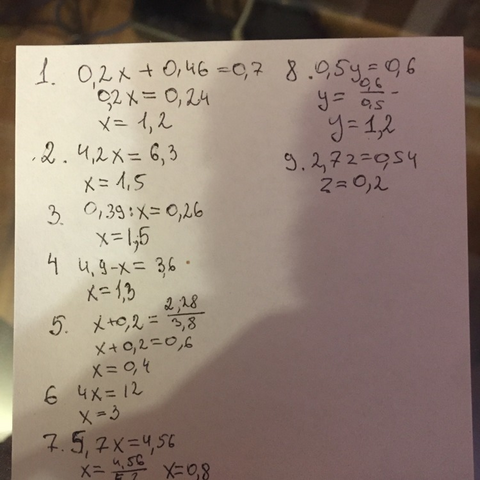 1. 0,2x + 0,46 = 0,7
0,2x = 0,24
x = 1,2
2. 4,2x = 6,3
x = 1,5
3. 0,39 : x = 0,26
x = 1,5
4 4,9 - x = 3,6
x = 1,3
5. x + 0,2 = 2,28/3,8
x + 0,2 = 0,6
x = 0,4
6 4x = 12
x = 3
7. 5,7x = 4,56
x = 4,56/5,7 x = 0,8
8. 0,5y = 0,6
y = 0,6/0,5
y = 1,2
9. 2,7z = 0,54
z = 0,2